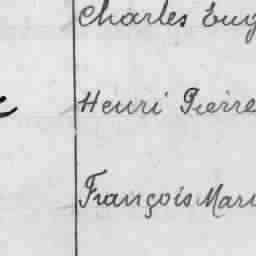 Charles Eug
Henri Pierre
François Mari